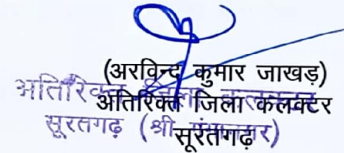 (अरविन्द कुमार जाखड़)
अतिरिक्त जिला कलक्टर
सूरतगढ़
अतिरिक्त जिला कलक्टर
सूरतगढ़ (श्री गंगानगर)